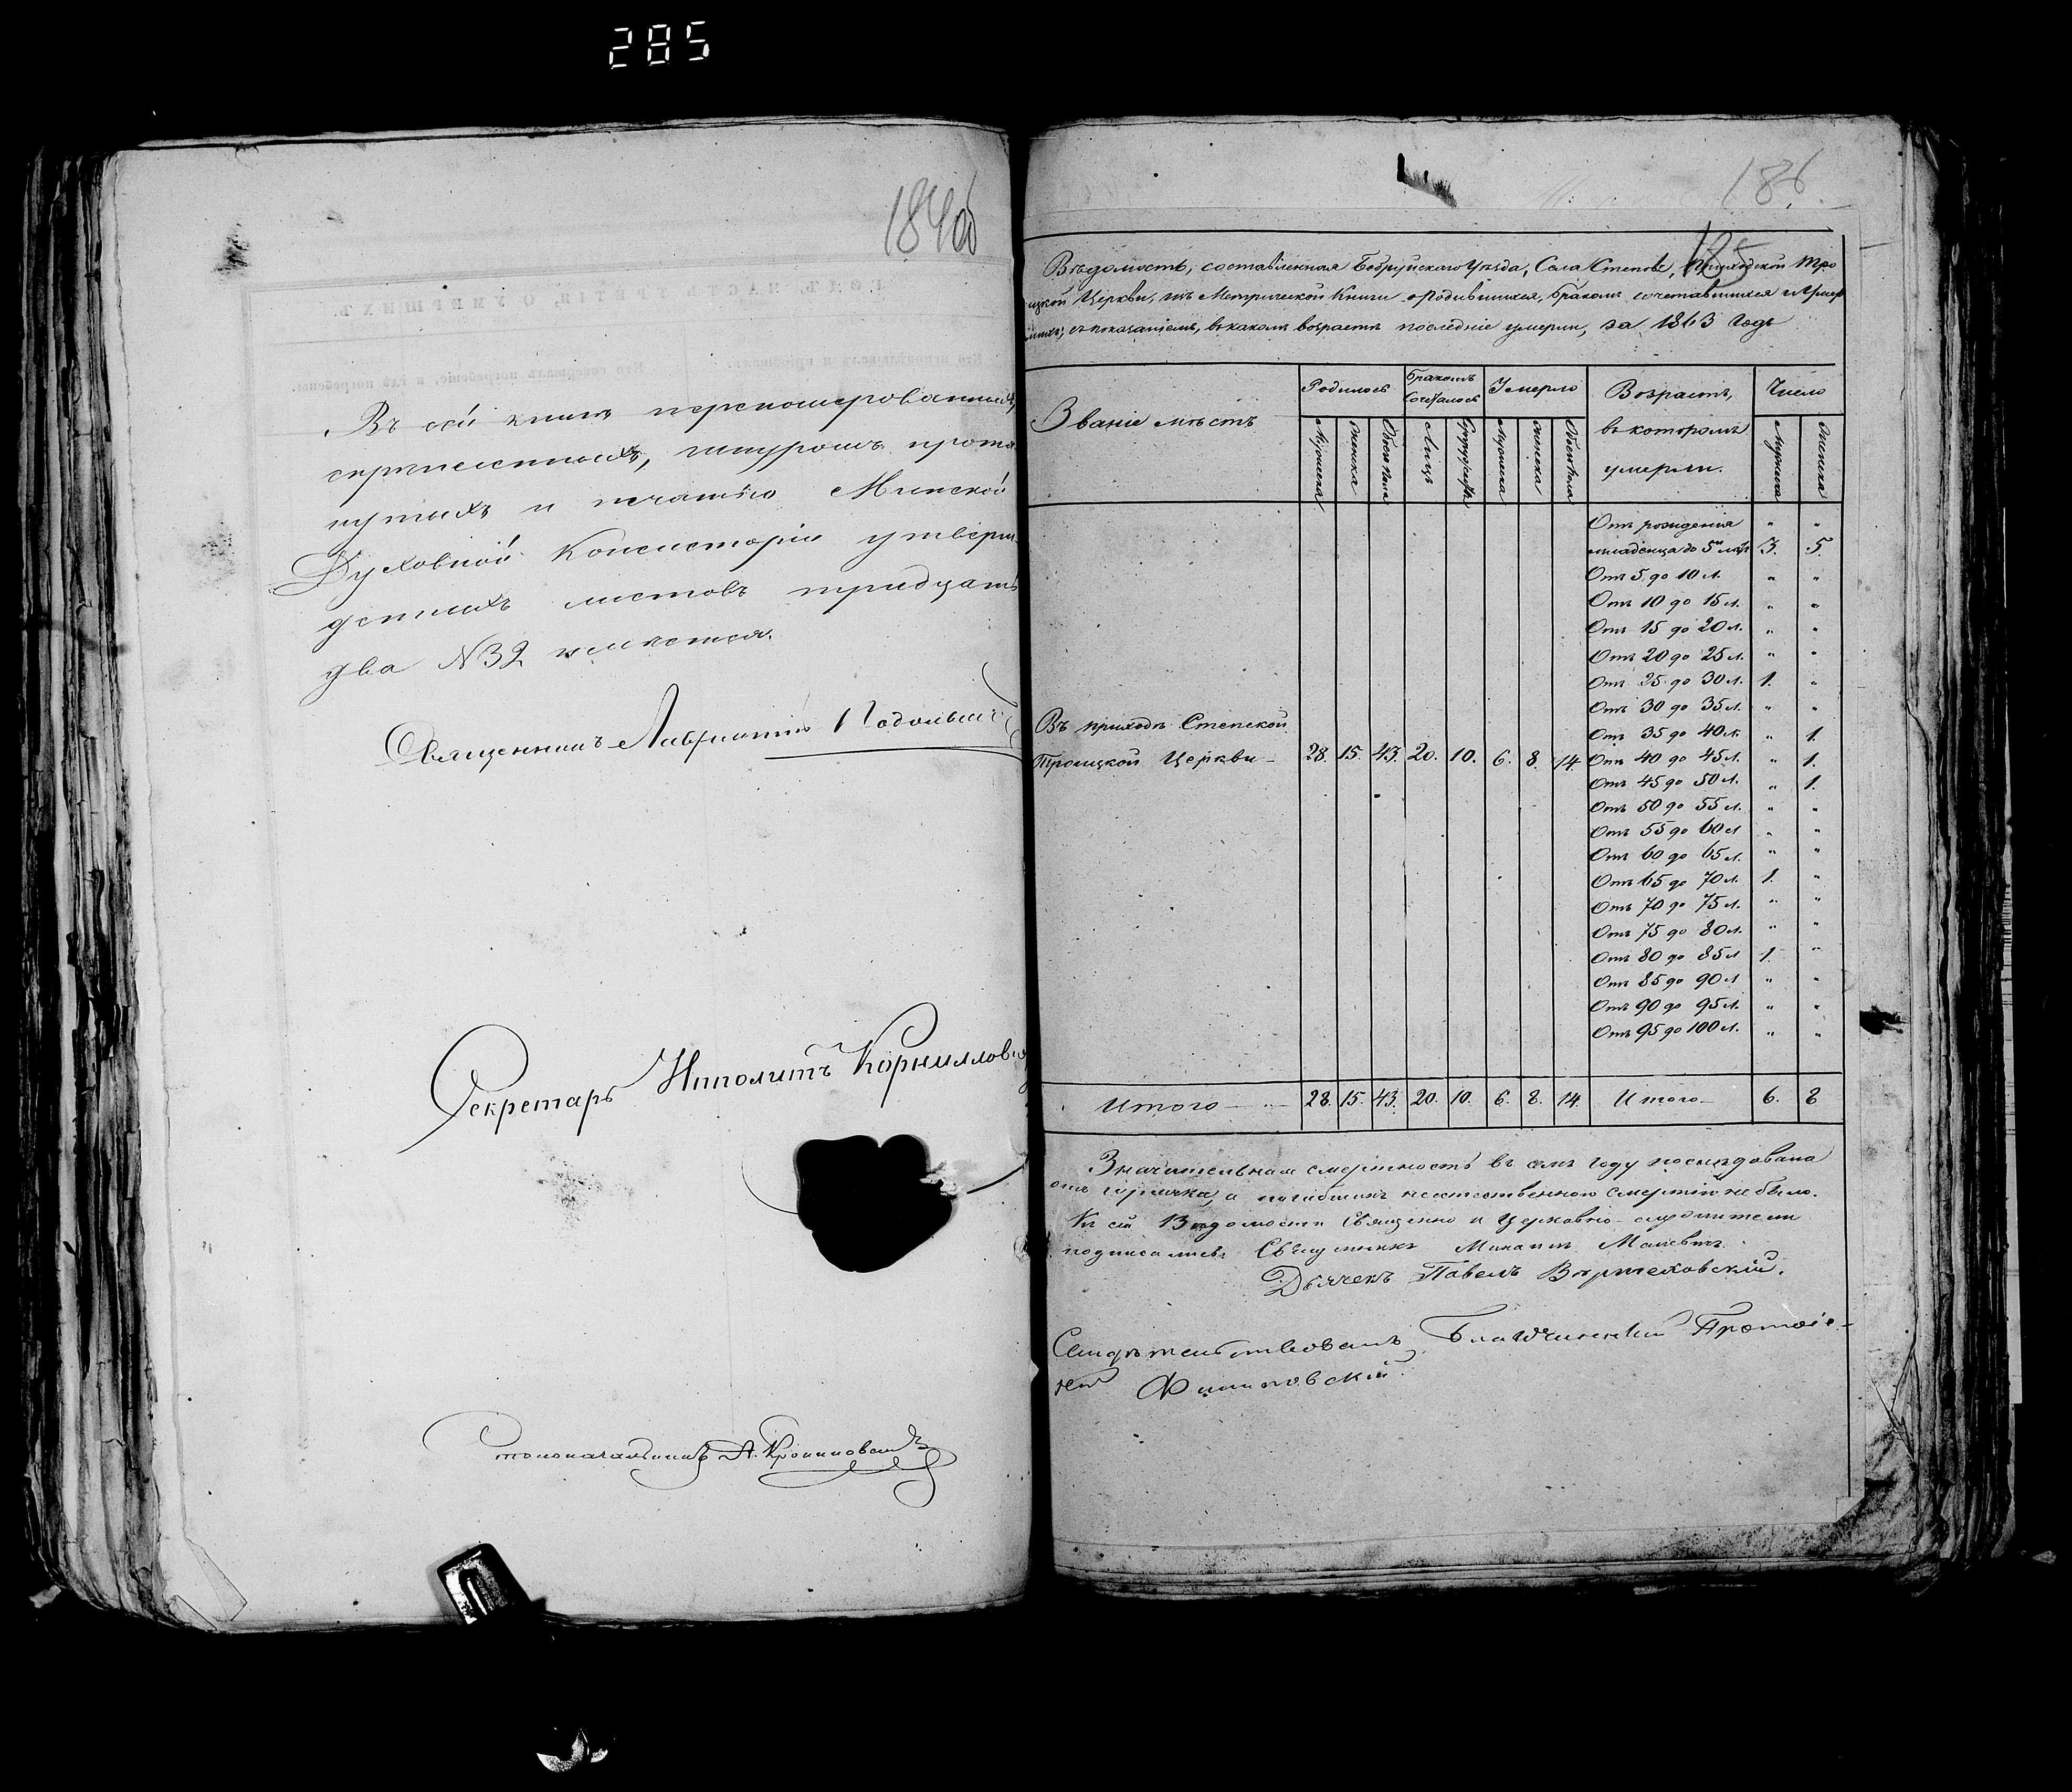 285
184об
Въ сей книгѣ перенумерованныхъ,
скрѣпленныхъ, шнуромъ протя
нутыхъ и печатью Минской
Духовной Консисторіи утверж
денныхъ листовъ тридцать
два №32 имѣется.
Священникъ Лаврентій
Секретарь Ипполитъ Корнилов
Столоначальникъ А.
186
185
Вѣдомость, составленная Бобруйскаго Уѣзда, Села Степовъ, Приходской Тро
ицкой Церкви, изъ Метрической Книги о Родившихся, бракомъ сочетавшихся и Умер
шихъ, съ показаніемъ, въ какомъ возрастѣ послѣдніе умерли, за 1863 Годъ
Званіе мѣстъ
Родилось
Бракомъ Сочеталось
Умерло
Возрастъ, въ которомъ умерли.
Число
Мужеска
женска
Обоего пола
Лицъ
Супружествъ
Мужеска
женска
Обоего пола
Мужеска
женска
Отъ рожденія " "
младенца до 5и лѣтъ 3. 5.
Отъ 5 до 10 л. " "
Отъ 10 до 15 л. " "
Отъ 15 до 20 л. " "
Отъ 20 до 25 л. " "
Отъ 25 до 30 л. 1. "
Отъ 30 до 35 л. " "
Отъ 35 до 40 л. " 1.
Въ приходѣ Степской
Троицкой Церкви – 28. 15. 43. 20. 10. 6. 8. 14.
Отъ 40 до 45 л. " 1.
Отъ 45 до 50 л. " 1.
Отъ 50 до 55 л. " "
Отъ 55 до 60 л " "
Отъ 60 до 65 л. " "
Отъ 65 до 70 л. 1. "
Отъ 70 до 75 л. " "
Отъ 75 до 80 л. " "
Отъ 80 до 85 л 1. "
Отъ 85 до 90 л " "
Отъ 90 до 95 л. " "
Отъ 95 до 100 л. " "
Итого 28. 15. 43. 20. 10. 6. 8. 14. Итого 6. 8
Значительная смертность въ семъ году послѣдовала
отъ горячки, а погибшихъ неестественною смертію не было.
Къ сей Вѣдомости Священно и Церковно-служители
подписались: Священникъ Михаилъ Малевичъ.
Дьячекъ Павелъ Вержеховскій.
Свидѣтельствовалъ Благочинный Протоіе-
рей